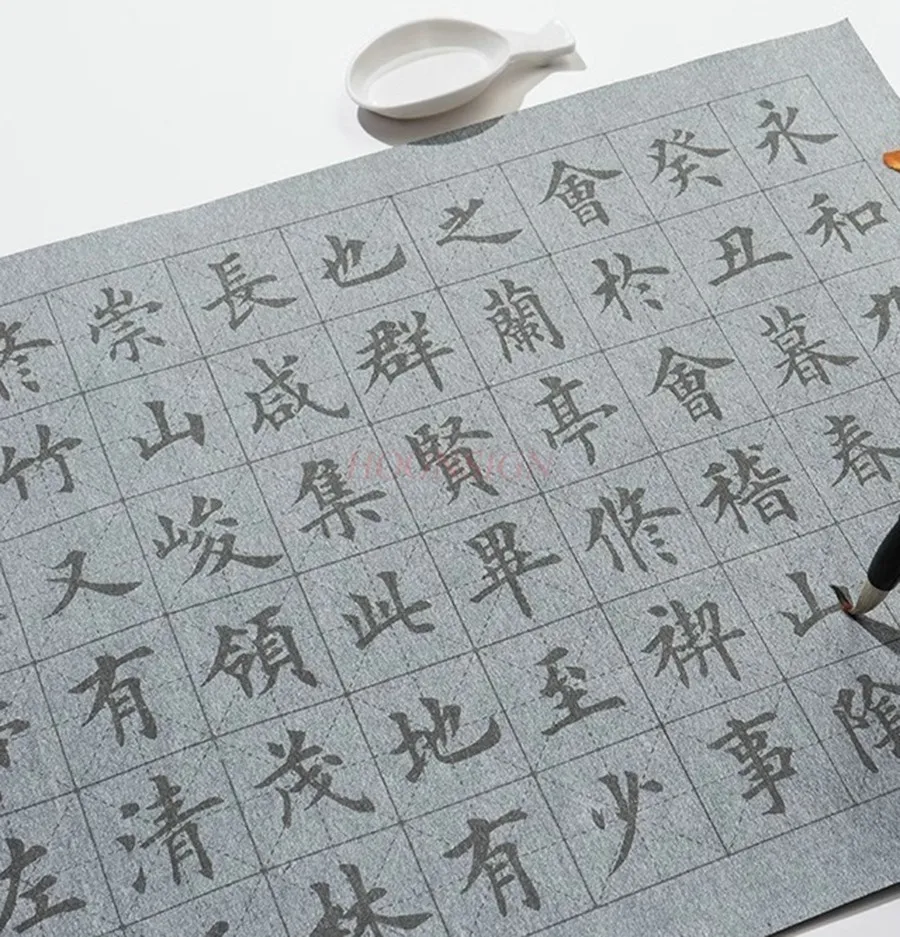 永和九
癸丑暮春
會於會稽山陰
之蘭亭修禊事
也群賢畢至少
長咸集此地有
崇山峻領茂林
修竹又有清
左